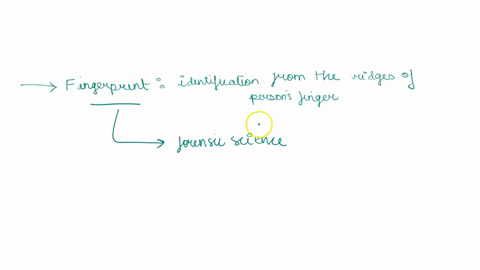 → Fingerprint : identification from the ridges of
person's finger
→ forensic science